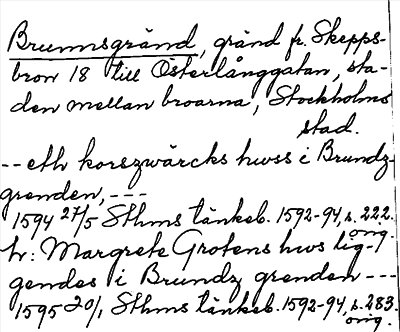 Brunnsgränd, gränd fr. Skepps-
bron 18 till Österlånggatan, sta-
den mellan broarna, Stockholms
stad.
-- eth korszwärcks hwss i Brundz-
grenden, ---
1594 27/5 Sthms tänkeb. 1592-94, s. 222.
orig.
h: Margrete Grotens hws lig-
gendes i Brundz grenden ---
1595 20/1 Sthms tänkeb. 1592-94, s. 283.
orig.